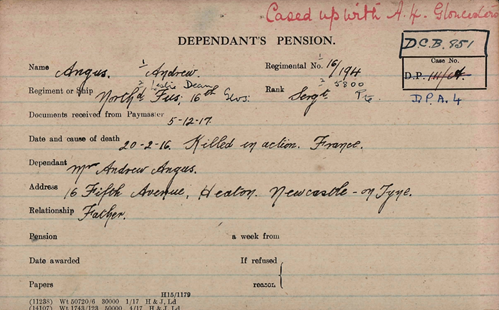 Cased up with A.H. Gloucesters
DEPENDANT'S PENSION.
D.C.B. 951
Name Angus. 1 Andrew. Regimental No. 1 16/194
Case No.
2 Leslie Dean 2 5800
D.P.
Regiment or Ship North'd Fus. 16th Glos: Rank Sergt Pte
D.P.A. 4
Documents received from Paymaster 5-12-17
Date and cause of death 20-2-16. Killed in action. France.
Dependant Mr Andrew Angus.
Address 16 Fifth Avenue, Heaton. Newcastle-on Tyne.
Relationship Father.
Pension a week from
Date awarded If refused
Papers reason
H15/1179
(11238) Wt 50720/6 50000 1/17 H & J, Ld
(14107) Wt 1743/123 50000 4/17 H & J, Ld